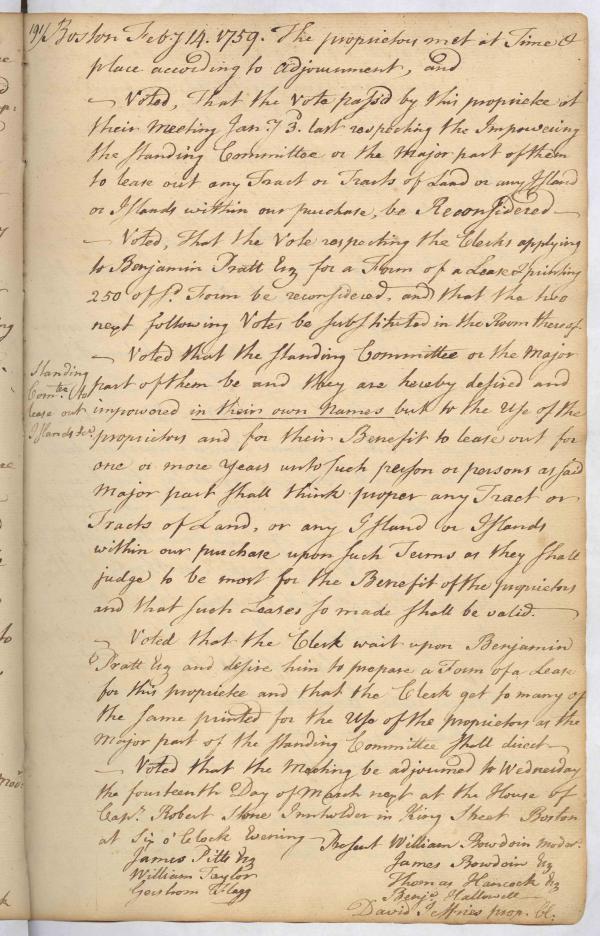 191/ Boston Feb:y 14. 1759. The proprietors met at Time &
place according to adjournment, and
Voted, That the Vote pass'd by this proprietee at
their Meeting Jan:y 3.d last respecting the Impowering
the standing Committee or the major part of them
to lease out any Tract or Tracts of Land or any Island
or Islands within our purchase, be Reconsidered
Voted, That the Vote respecting the Clerks applying
to Benjamin Pratt Esq for a Form of a Lease & printing
250 of s.d Form be reconsidered, and that the two
next following Votes be substituted in the Room thereof.
Voted that the standing Committee or the Major
part of them be and they are hereby desired and
impowered in their own names but to the Use of the
proprietors and for their Benefit to lease out for
one or more Years unto such person or persons as said
Major part shall think proper any Tract or
Tracts of Land, or any Island or Islands
within our purchase upon such Terms as they shall
judge to be most for the Benefit of the proprietors
and that such Leases so made shall be valid.
Standing
Com.tee to
lease out
Islands &c.
Voted that the Clerk wait upon Benjamin
Pratt Esq and desire him to prepare a Form of a Lease
for this proprietee and that the Clerk get so many of
the same printed for the Use of the proprietors as the
Major part of the standing Committee shall direct
Voted that the Meeting be adjourned to Wednesday
the fourteenth Day of March next at the House of
Cap.t Robert Stone Innholder in King Street Boston
at Six o'Clock Evening Present William Bowdoin Moder.r
James Pitts Esq
James Bowdoin Esq
William Taylor
Thomas Hancock Esq
Gershom Flagg
Benj.a Hallowell
David Jeffries prop. Cl: